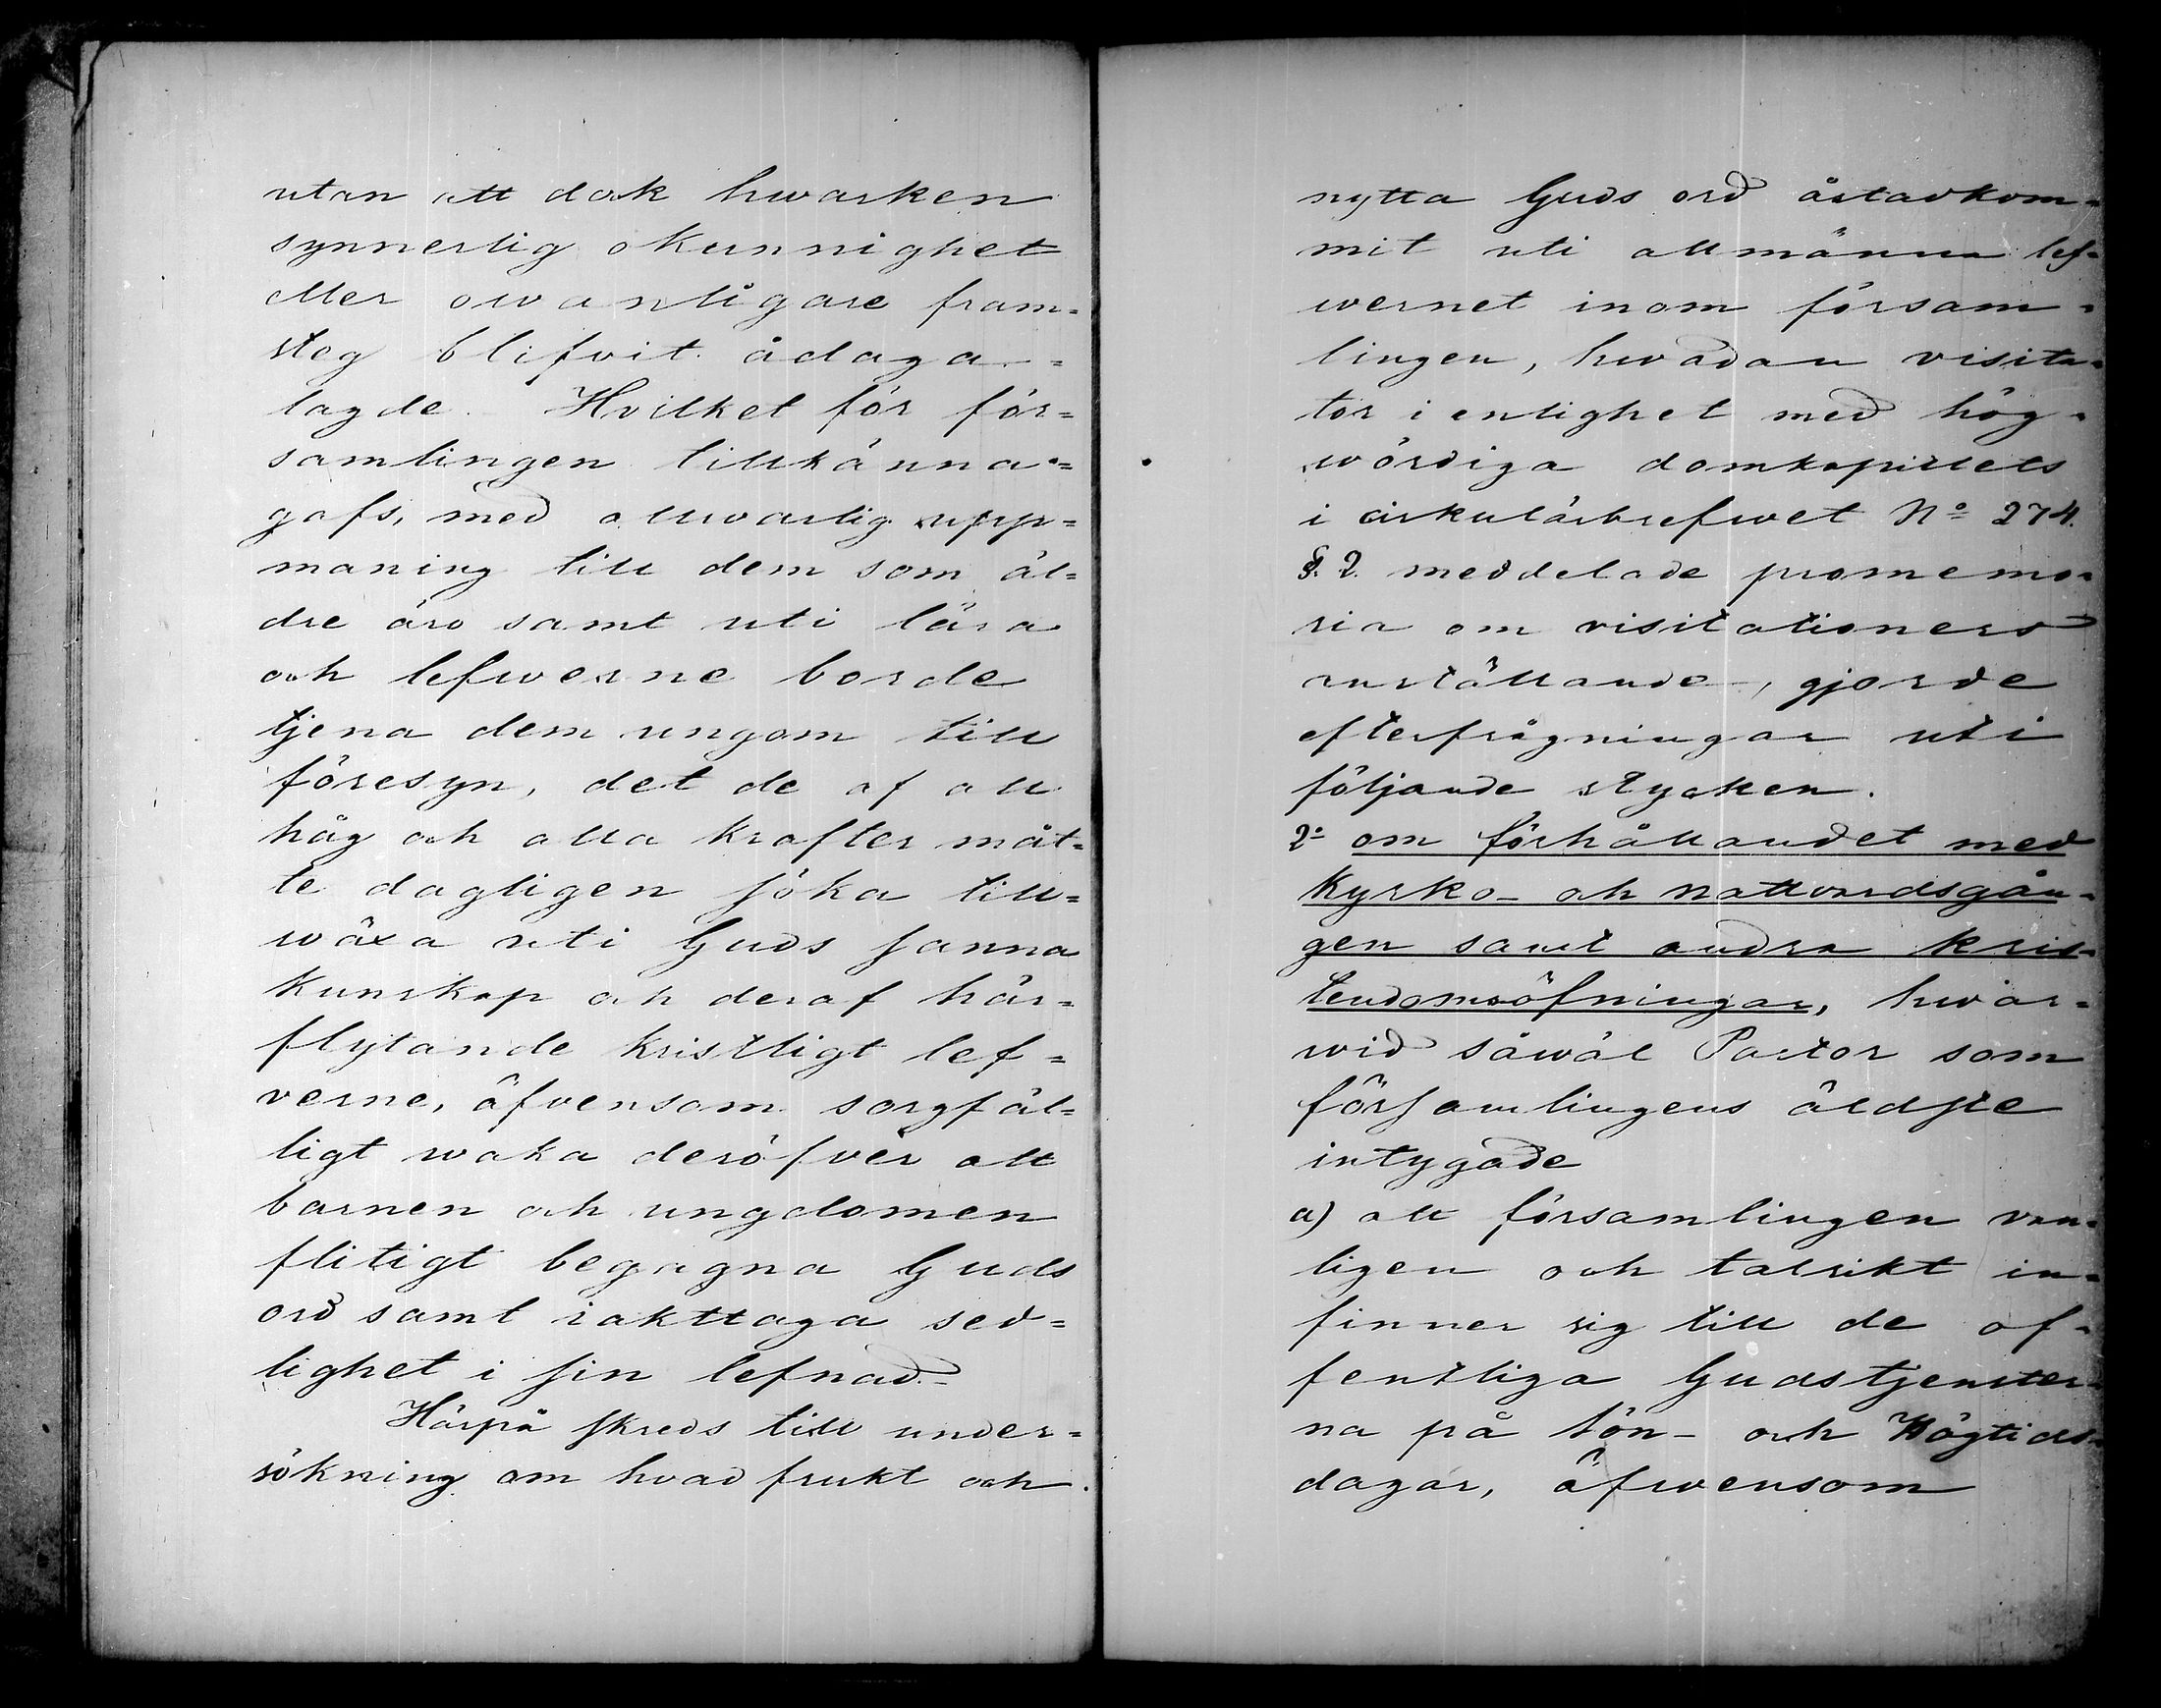 utan att dock hwarken
synnerlig okunnighet
eller owanligare fram=
steg blifvit ådaga=
lagde. Hvilket för för=
samlingen tillkänna=
gafs, med allwarlig upp=
maning till dem som äl=
dre äro samt uti lära
och lefwerne borde
tjena dem ungom till
föresyn, det de af all
håg och alla krafter måt=
te dagligen söka till=
wäxa uti Guds sanna
kunskap och deraf här=
flytande kristligt lef=
verne, äfvensom sorgfäl=
ligt waka deröfver att
barnen och ungdomen
flitigt begagna Guds
ord samt iakttaga sed=
lighet i sin lefnad.
Härpå skreds till under=
sökning om hvad frukt och
nytta Guds ord åstadkom=
mit uti allmänna lef=
wernet inom försam=
lingen, hwadan visita=
tor i enlighet med hög=
wördiga domkapitlets
i cirkulärbrefwet No 274.
§. 2. meddelade promemo=
ria om visitationers
anställande, gjorde
efterfrågningar uti
följande stycken.
2o om förhållandet med
kyrko- och nattvardsgån=
gen samt andra kris=
tendomsöfningar, hwar=
wid såwäl Pastor som
församlingens äldste
intygade
a) att församlingen van=
ligen och talrikt in=
finner sig till de of=
fentliga Gudstjenster=
na på sön- och Högtids=
dagar, äfwensom